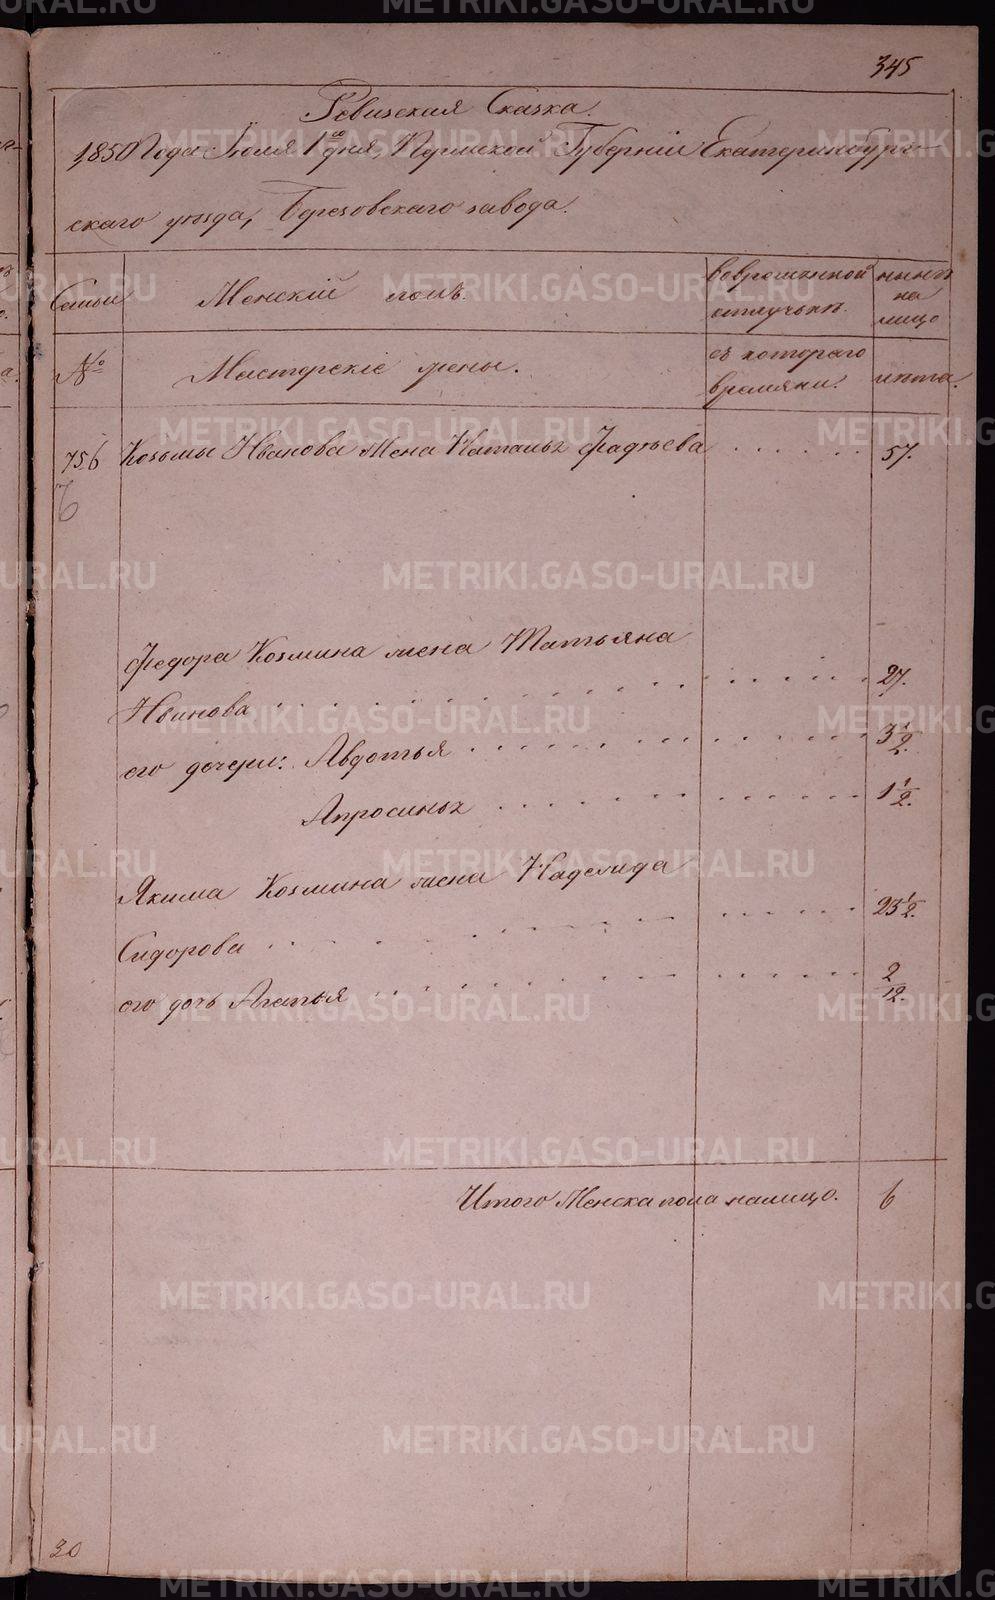 345
Ревизская Сказка.
1850 Года Іюля 1го дня, Пермской Губерніи Екатеринбург-
скаго уѣзда, Березовскаго завода.
Семьи
Женскій полъ.
вовременной отлучькѣ.
нынѣ на лицо
№
Мастерскіе жены.
съ котораго времяни.
лѣта.
756 Козьмы Иванова жена Наталья Фадѣева 57.
Федора Козмина жена Татьяна
Иванова 27.
его дочери: Авдотья 3 1/2.
Апросинья 1 1/2.
Якима Козмина жена Надежда
Сидорова 23 1/2.
его дочь Агапья 2/12.
Итого Женска пола налицо. 6
30
METRIKI.GASO-URAL.RU